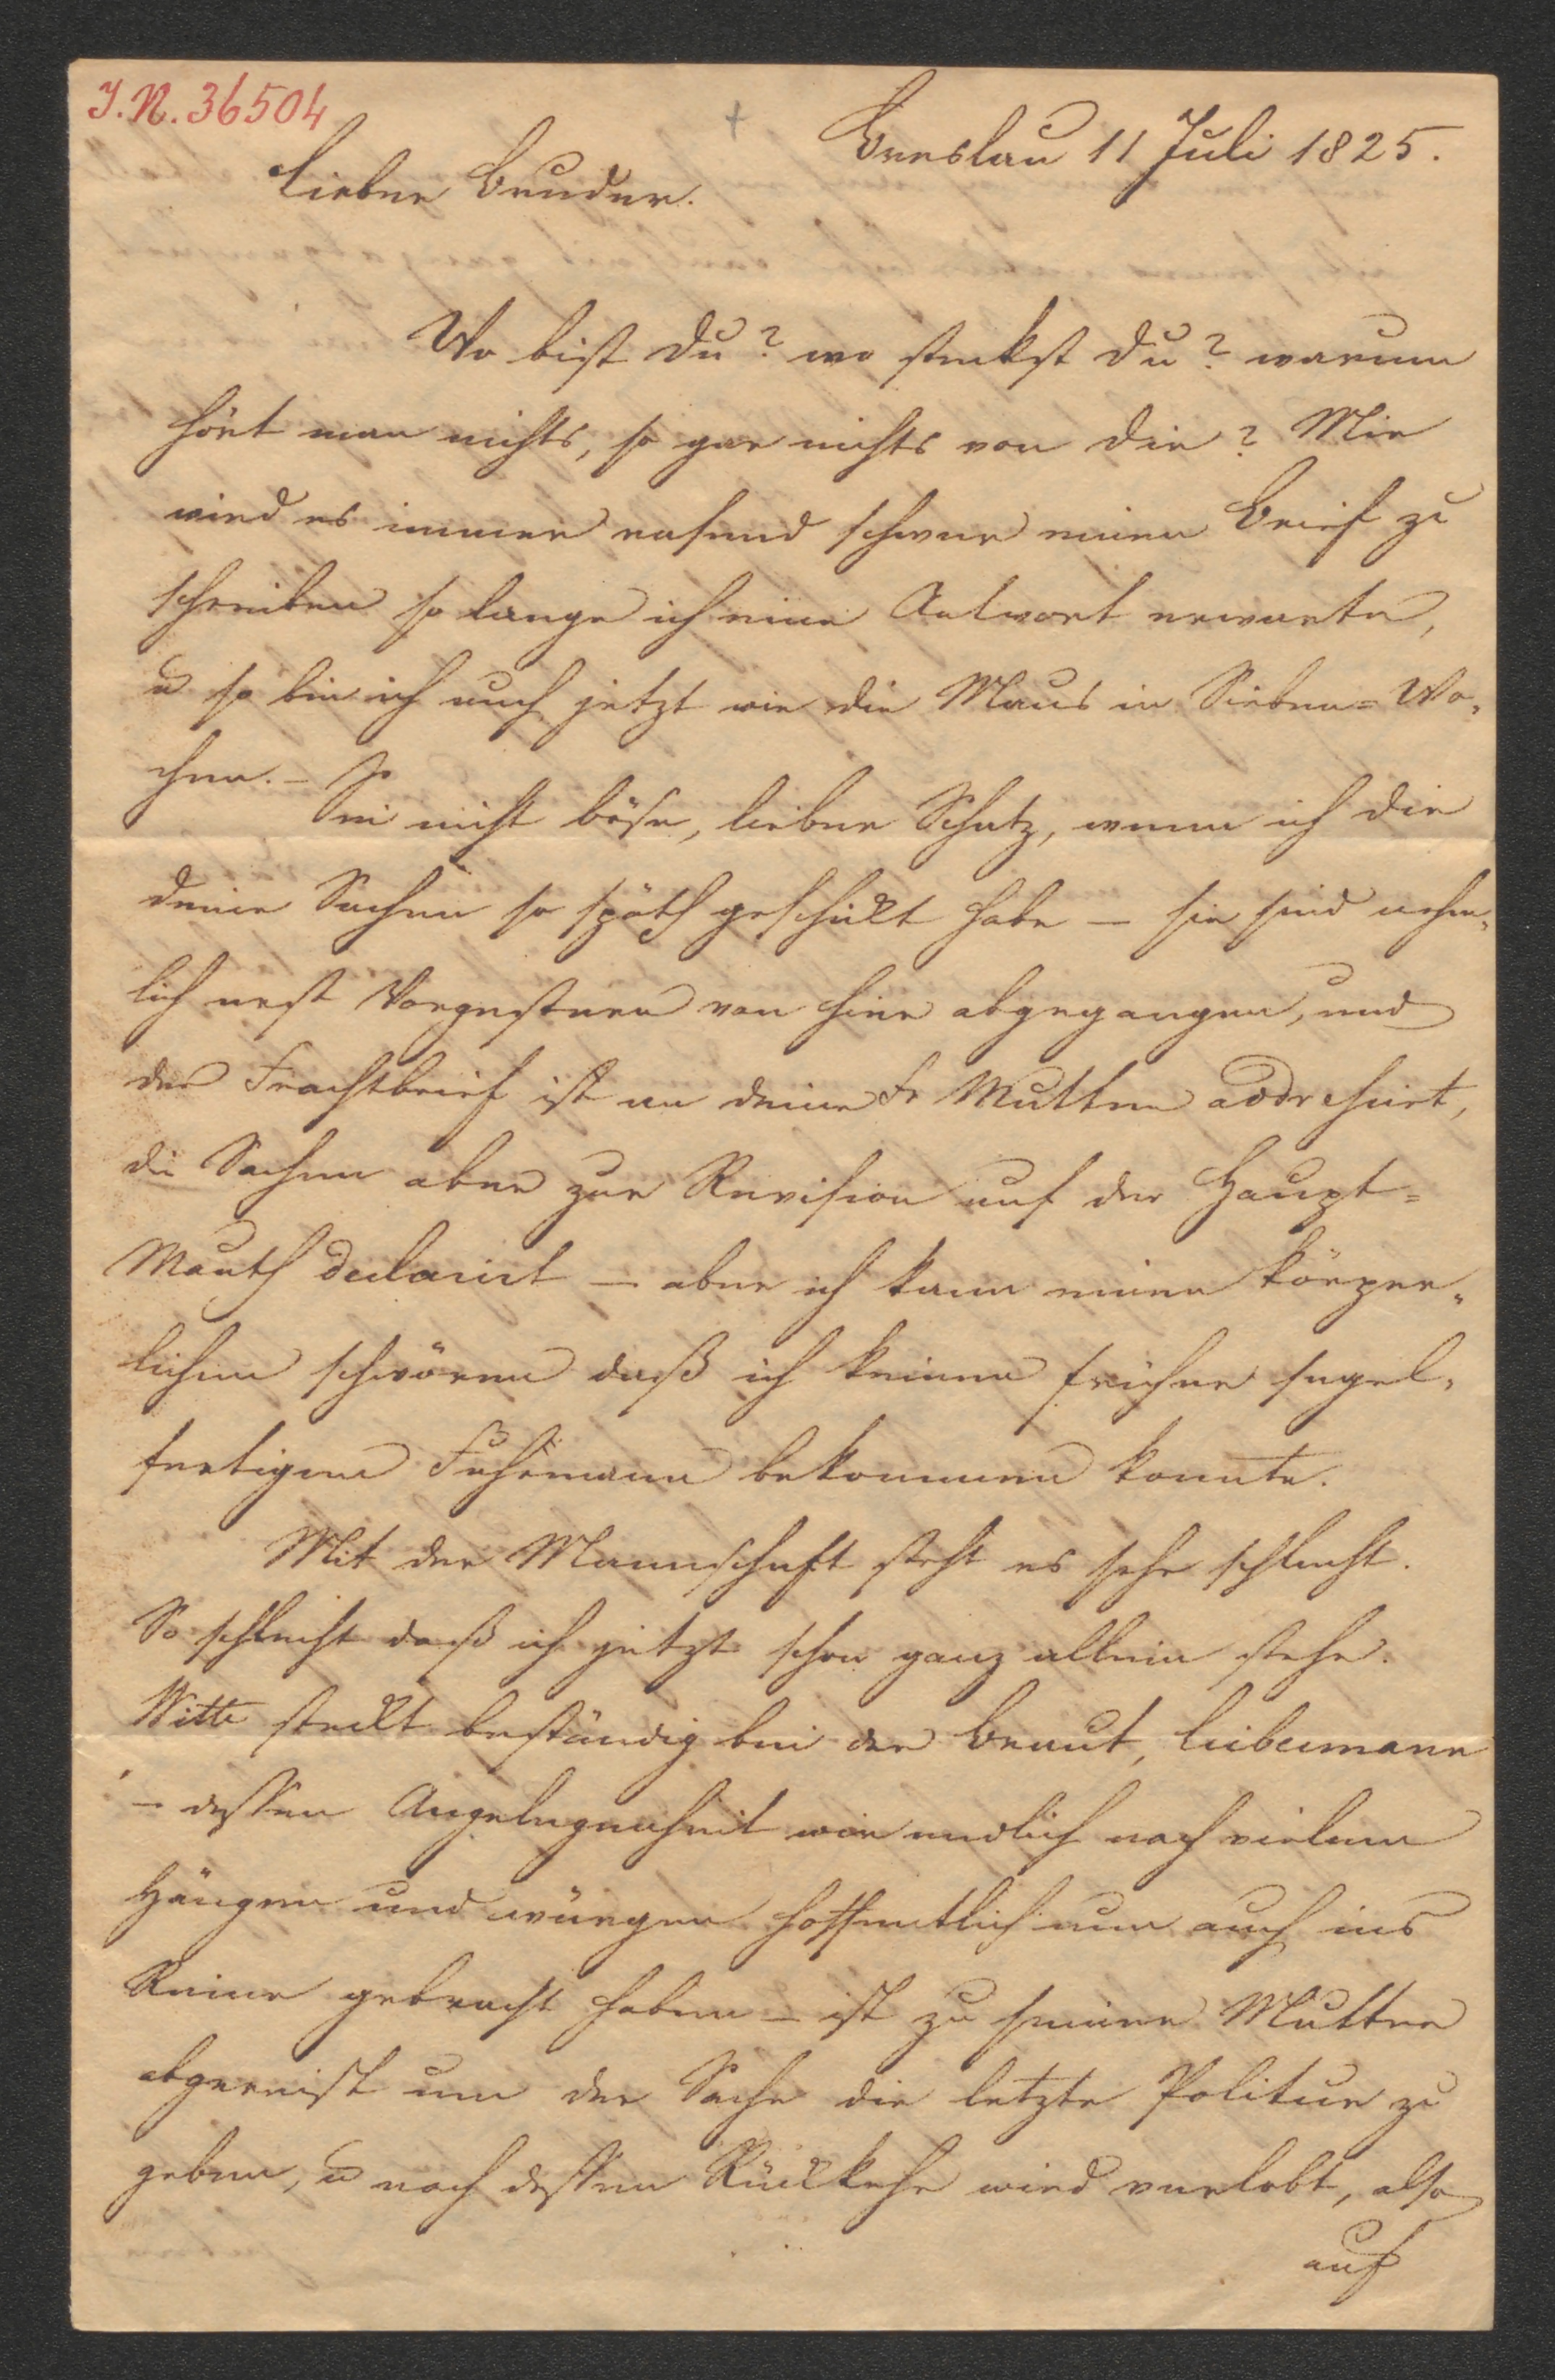 J.N. 36504
Breslau 11 Juli 1825.
Lieber Bruder.
Wo bist du? wo steckst du? warum
hört man nichts, so gar nichts von dir? Mir
wird es immer rasend schwer einen Brief zu
schreiben so lange ich eine Antwort erwarte,
u so bin ich auch jetzt wie die Maus in Sieben= Wo„
chen. – Sei nicht böse, lieber Schatz, wenn ich dir
deine Sachen so späth geschickt habe – sie sind nehm„
lich erst Vorgestern von hier abgegangen, und
der Frachtbrief ist an deine Fr Mutter addressirt,
die Sachen aber zur Revision auf der Haupt=
Mauth declarirt – aber ich kann einen körper„
lichen schwören daß ich keinen früher segel„
fertigen Fuhrmann bekommen konnte.
Mit der Mannschaft steht es sehr schlecht.
So schlecht daß ich jetzt schon ganz allein stehe.
Witte steckt beständig bei der Braut, Liebermann
– dessen Angelegenheit wir endlich nach vielem
Hängen und würgen hoffentlich nun auch ins
Reine gebracht haben – ist zu seiner Mutter
abgereist um der Sache die letzte Politur zu
geben, u nach dessen Rückkehr wird verlobt, also
auf